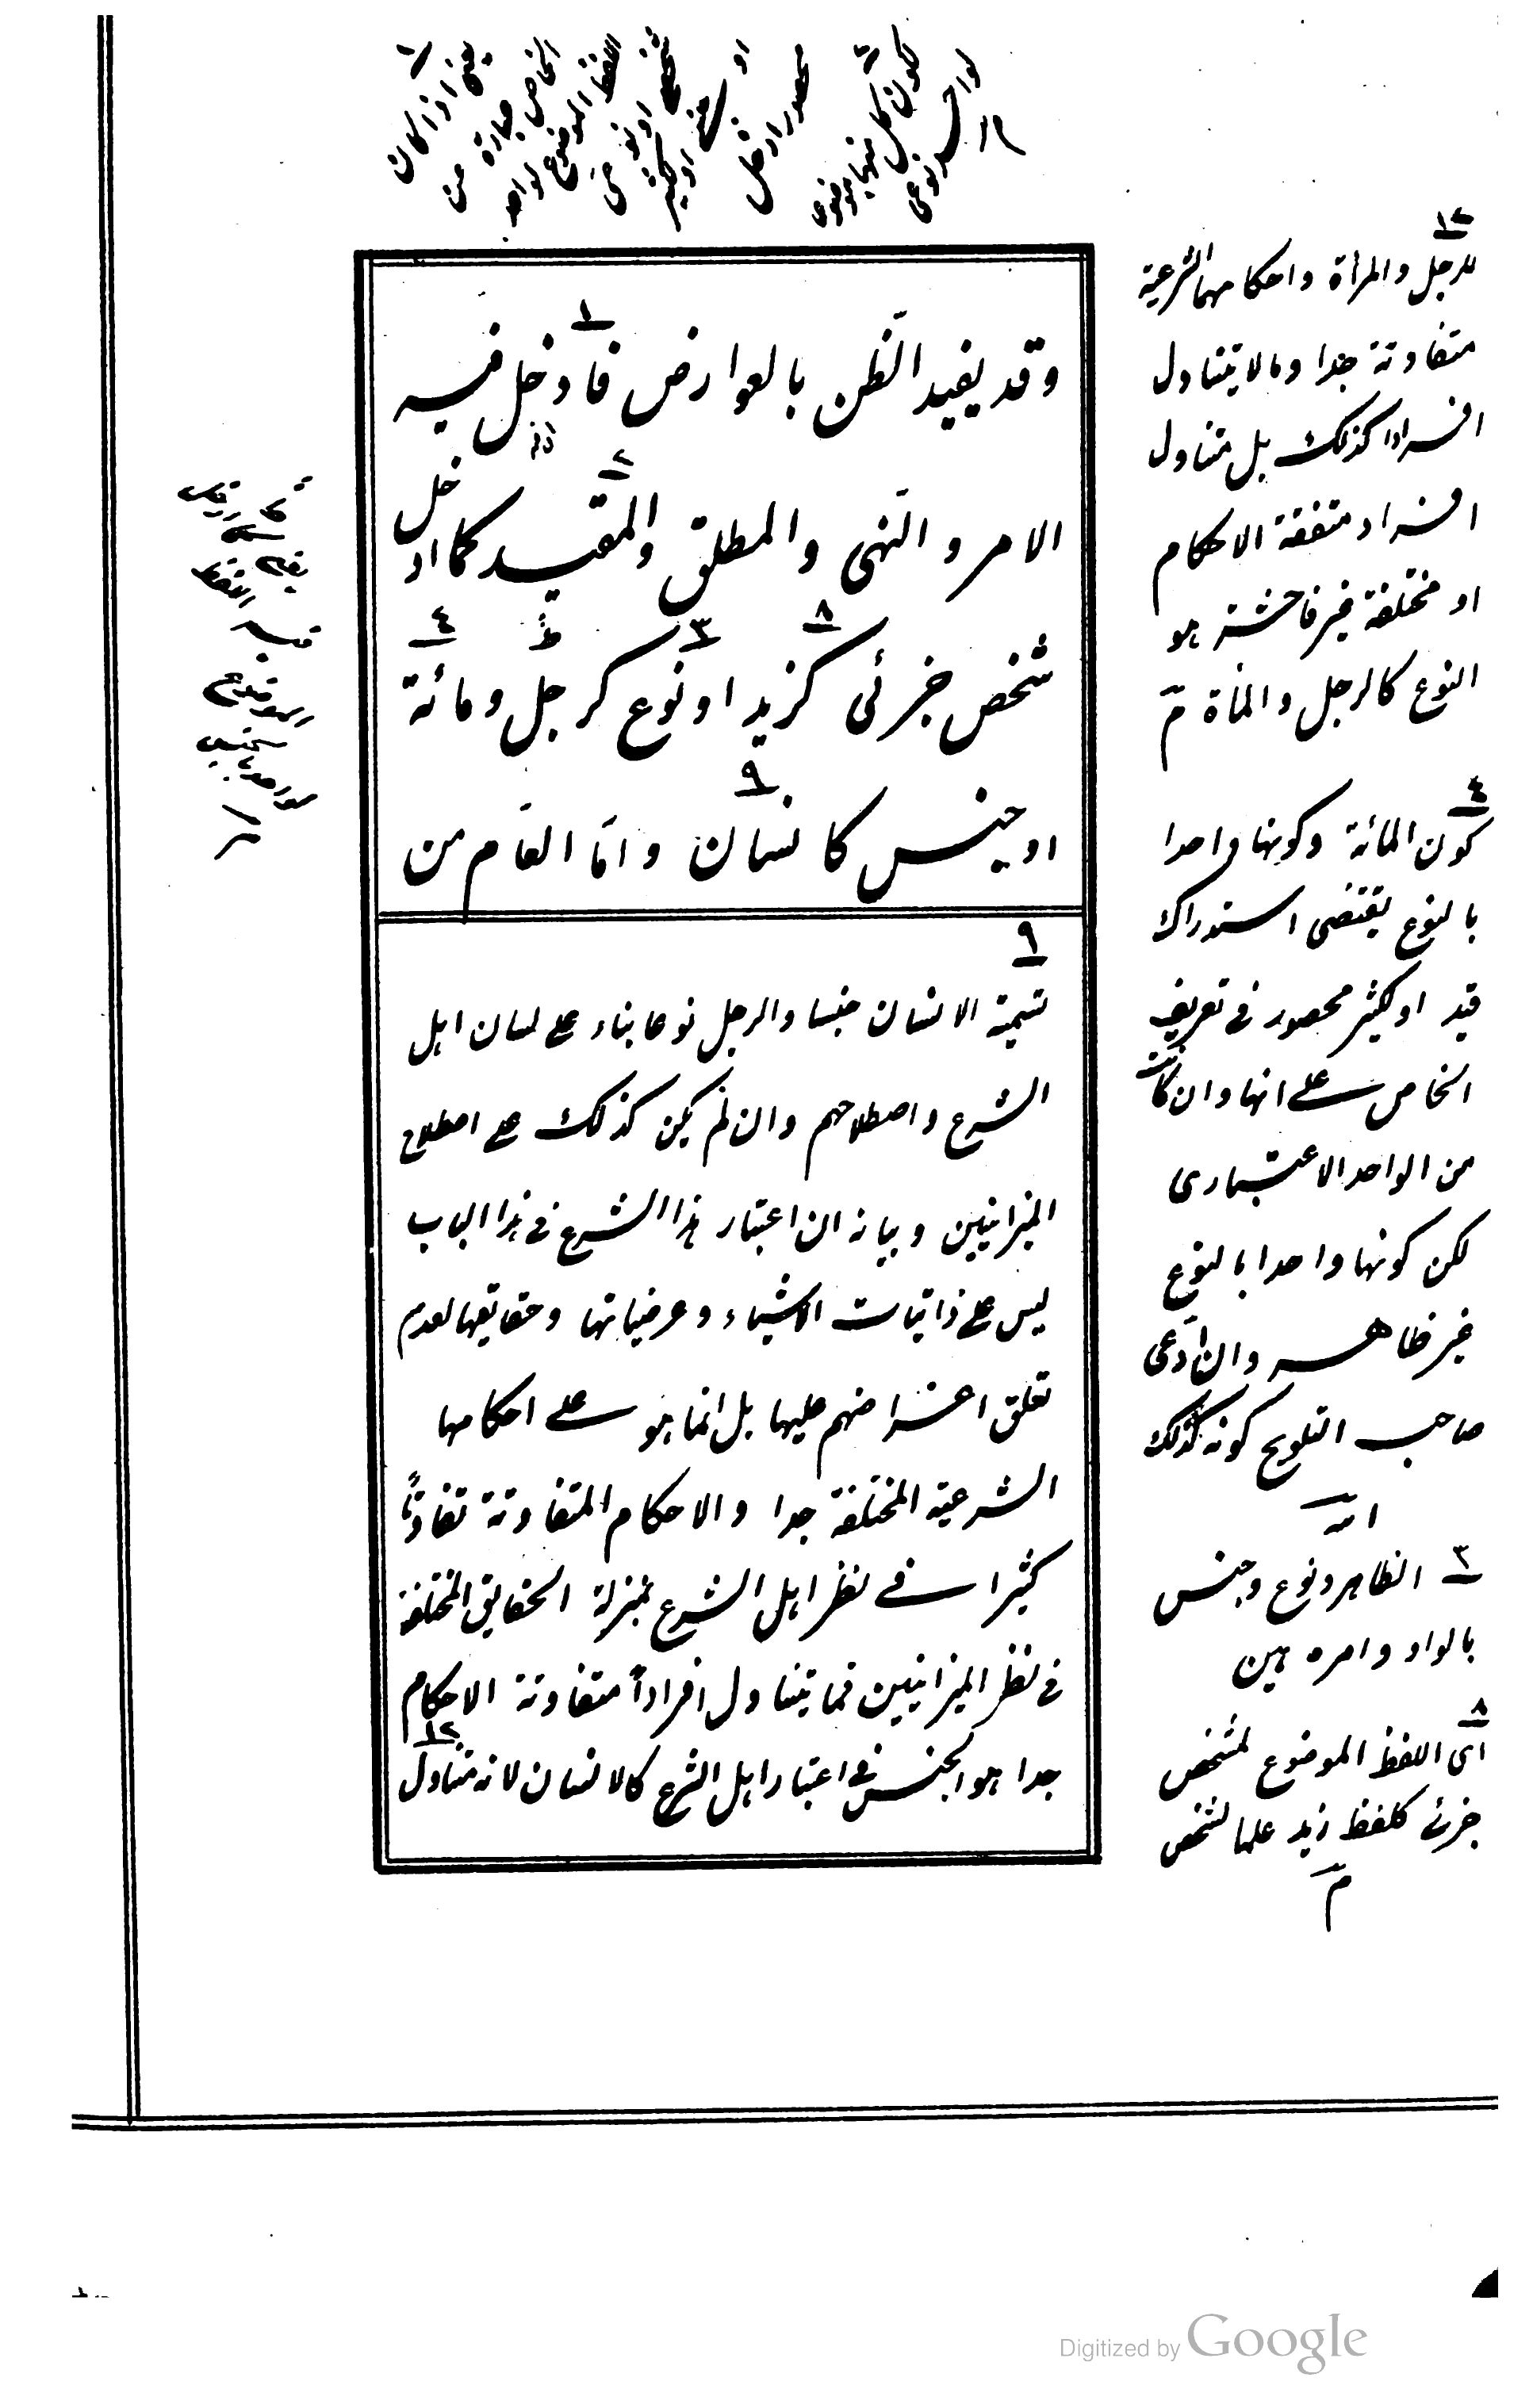 وقد يفيد الظن بالعوارض فأدخل فيه
الامر والنهى والمطلق والمقيد كما ادخل
شخص جزئى كزيد او نوع كرجل ومائة
او جنس كانسان وامّا العام من
٩
تسمية الانسان جنسا والرجل نوعا بناء على لسان اهل
الشرع واصطلاحهم وان لم يكن كذلك على اصطلاح
الميزانيين وبيانه ان اعتبار هذا الشرع فى هذا الباب
ليس على ذاتيات الاشياء وعرضياتها وحقايقها لعدم
تعلق اغراضهم عليها بل انما هو على احكامها
الشرعية المختلفة جدا والاحكام المتفاوتة تفاوتًا
كثيرا فى نظر اهل الشرع بمنزلة الحقايق المختلفة
فى نظر الميزانيين فما يتناول افرادًا متفاوتة الاحكام
جدا هو الجنس فى اعتبار اهل الشرع كالانسان لانه متناول
١٢
للرجل والمرأة واحكامهما الشرعية
متفاوتة جدا وما لا يتناول
افرادا كذلك بل متناول
افراد متفقة الاحكام
او مختلفة غير فاحشة هو
النوع كالرجل والمرأة م
٤
كون المائة وكونها واحدا
بالنوع يقتضى استدراك
قيد او كثير محصور فى تعريف
الخاص على انها وان كانت
من الواحد الاعتبارى
لكن كونها واحدا بالنوع
غير ظاهر وان ادعى
صاحب التلويح كونه كذلك
٣ الظاهر ونوع وجنس
بالواو وامره هين
٨
اى اللفظ الموضوع لشخص
جزئى كلفظ زيد علما لشخص
م
يعنى اذا كان
الخاص عبارة عن
اللفظ الموضوع لواحد
Digitized by Google